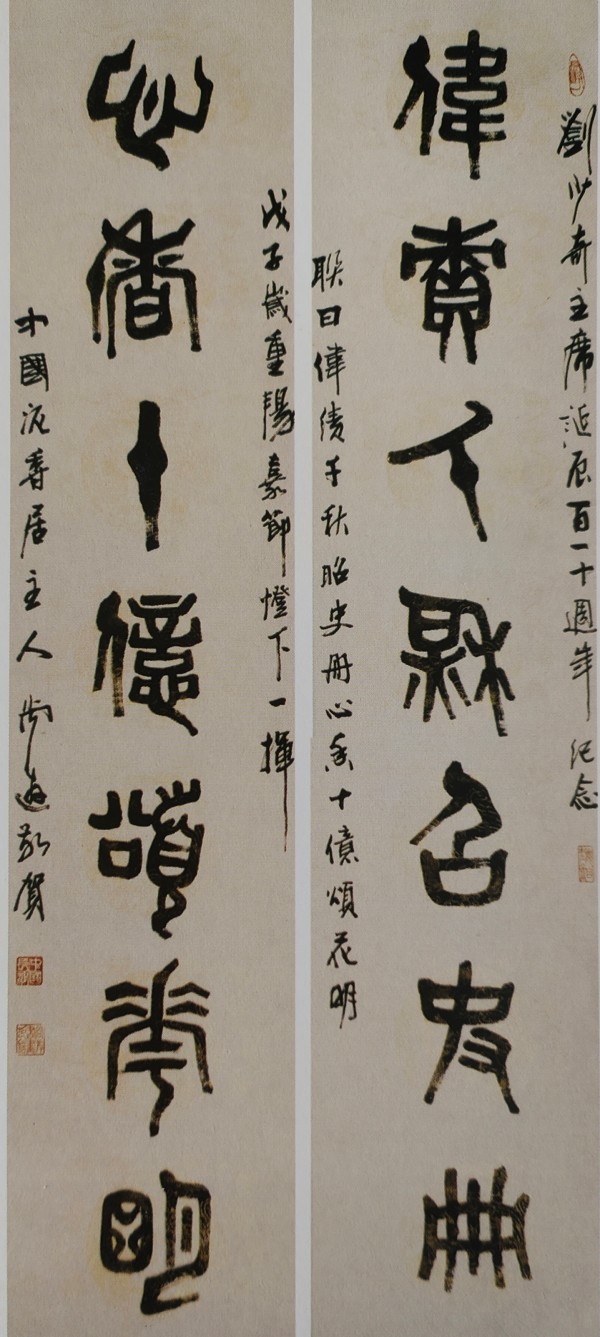 劉少奇主席誕辰百一十週年紀念
偉責千秋召史冊
聯曰偉績千秋昭史冊心香十億頌花明
戊子歲重陽嘉節燈下一揮
心香十億頌華明
中國香居主人尚敬賀